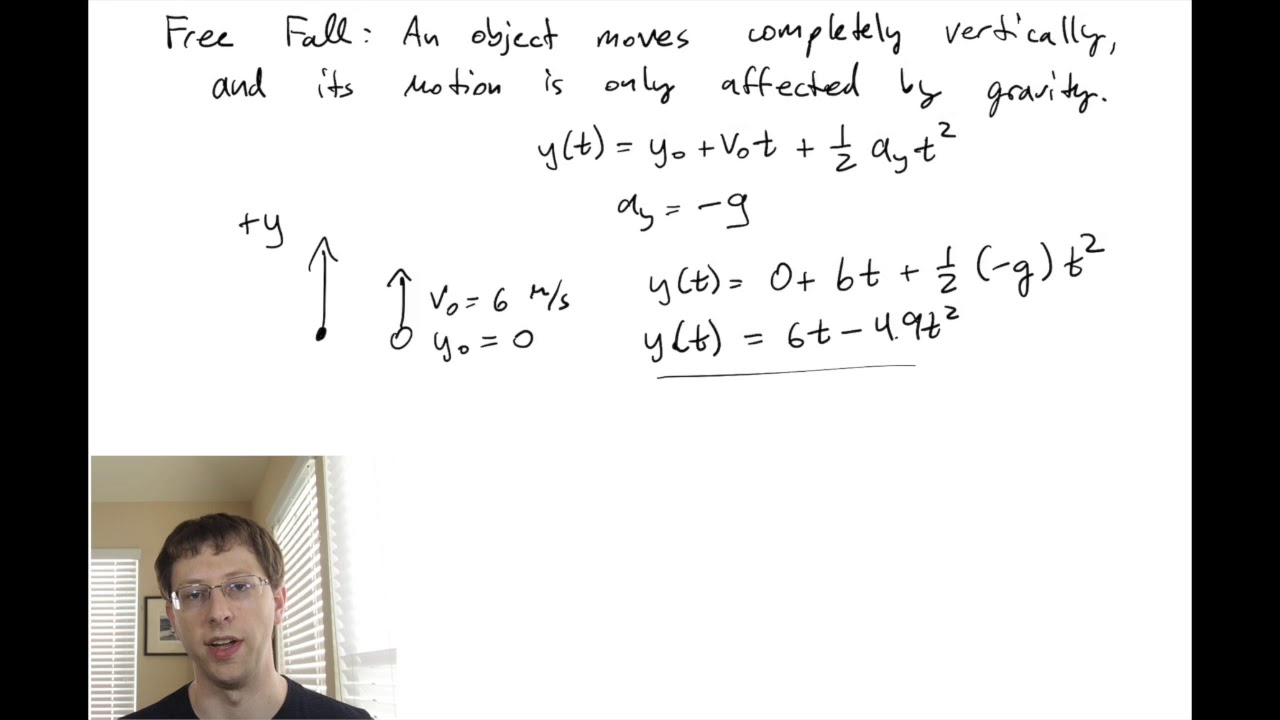 Free Fall: An object moves completely vertically,
and its motion is only affected by gravity.
y(t) = y₀ + v₀t + 1/2 a_y t²
a_y = -g
+y
v₀ = 6 m/s
y₀ = 0
y(t) = 0 + 6t + 1/2 (-g) t²
y(t) = 6t - 4.9t²